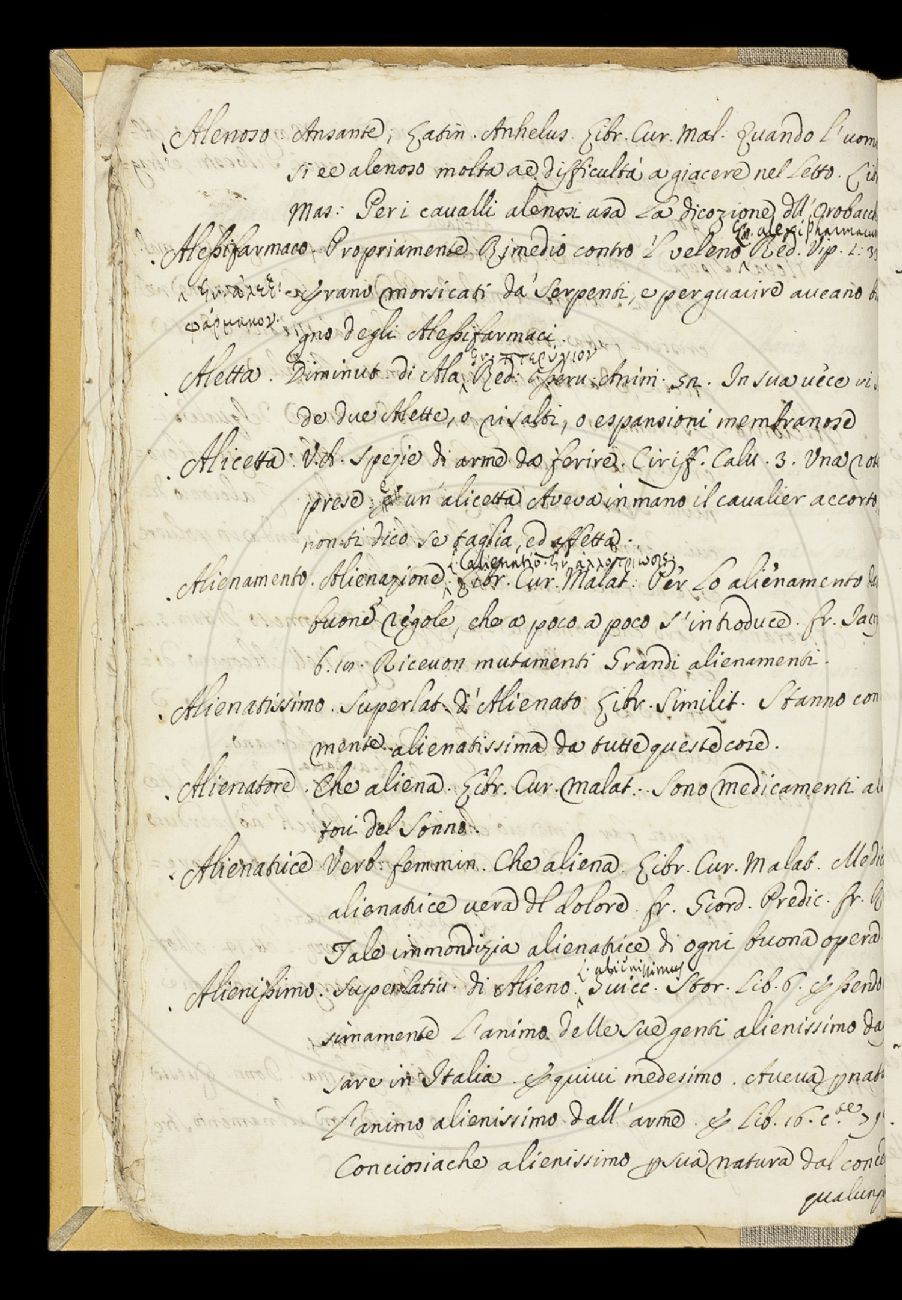 Alenoso Ansante; Latin. Anhelus. Libr. Cur. Mal. Quando l'uom
si ee alenoso molta ae difficultà a giacere nel letto. Lib
Mas: Per i cavalli alenosi usa la dicozione dll'Orobacch
L. alexipharmacum
Alessifarmaco. Propriamente Rimedio contro 'l veleno Red. Vip. 1: 3
Gr. ἀλεξι erano morsicati da' Serpenti, e per guarire aveano bi
φάρμακον. gno degli Alessifarmaci.
Gr. πτερύγιον
Aletta. Diminut. di Ala Red: Osseru. Anim. 52. In sua vece vi
de due Alette, o risalti, o espansioni membranose
Alicetta. Vd. Spezie di arme da ferire. Ciriff. Calu. 3. Una
prese un'alicetta Aveva in mano il cavalier accorto
non ti dico se taglia, ed affetta.
L. alienatio. Gr. ἀλλοτρίωσις
Alienamento. Alienazione. Libr. Cur. Malat: Per lo alienamento da
buone regole, che a poco a poco s'introduce. fr. Iac
6. 10. Ricevon mutamenti Grandi alienamenti.
Alienatissimo. Superlat. di Alienato Libr. Similit. Stanno con
mente alienatissima da tutte queste cose.
Alienatore. Che aliena. Libr. Cur. malat. Sono medicamenti al
tori del Sonno.
Alienatrice Verb: femmin. Che aliena. Libr. Cur. Malat. Medic
alienatrice vera dl dolore. fr. Giord. Predic. fr. R
Tale immondizia alienatrice di ogni buona opera
L. alienissimus
Alienissimo. Superlatiu. di Alieno. Guicc. Stor. Lib. 6. Essendo
simamente l'animo delle sue genti alienissimo da
sare in Italia. E quiui medesimo. Aveva p nat
l'animo alienissimo dall'arme. E Lib. 16. c.te 75.
Conciosiache alienissimo p sua natura dal conce
qualunq